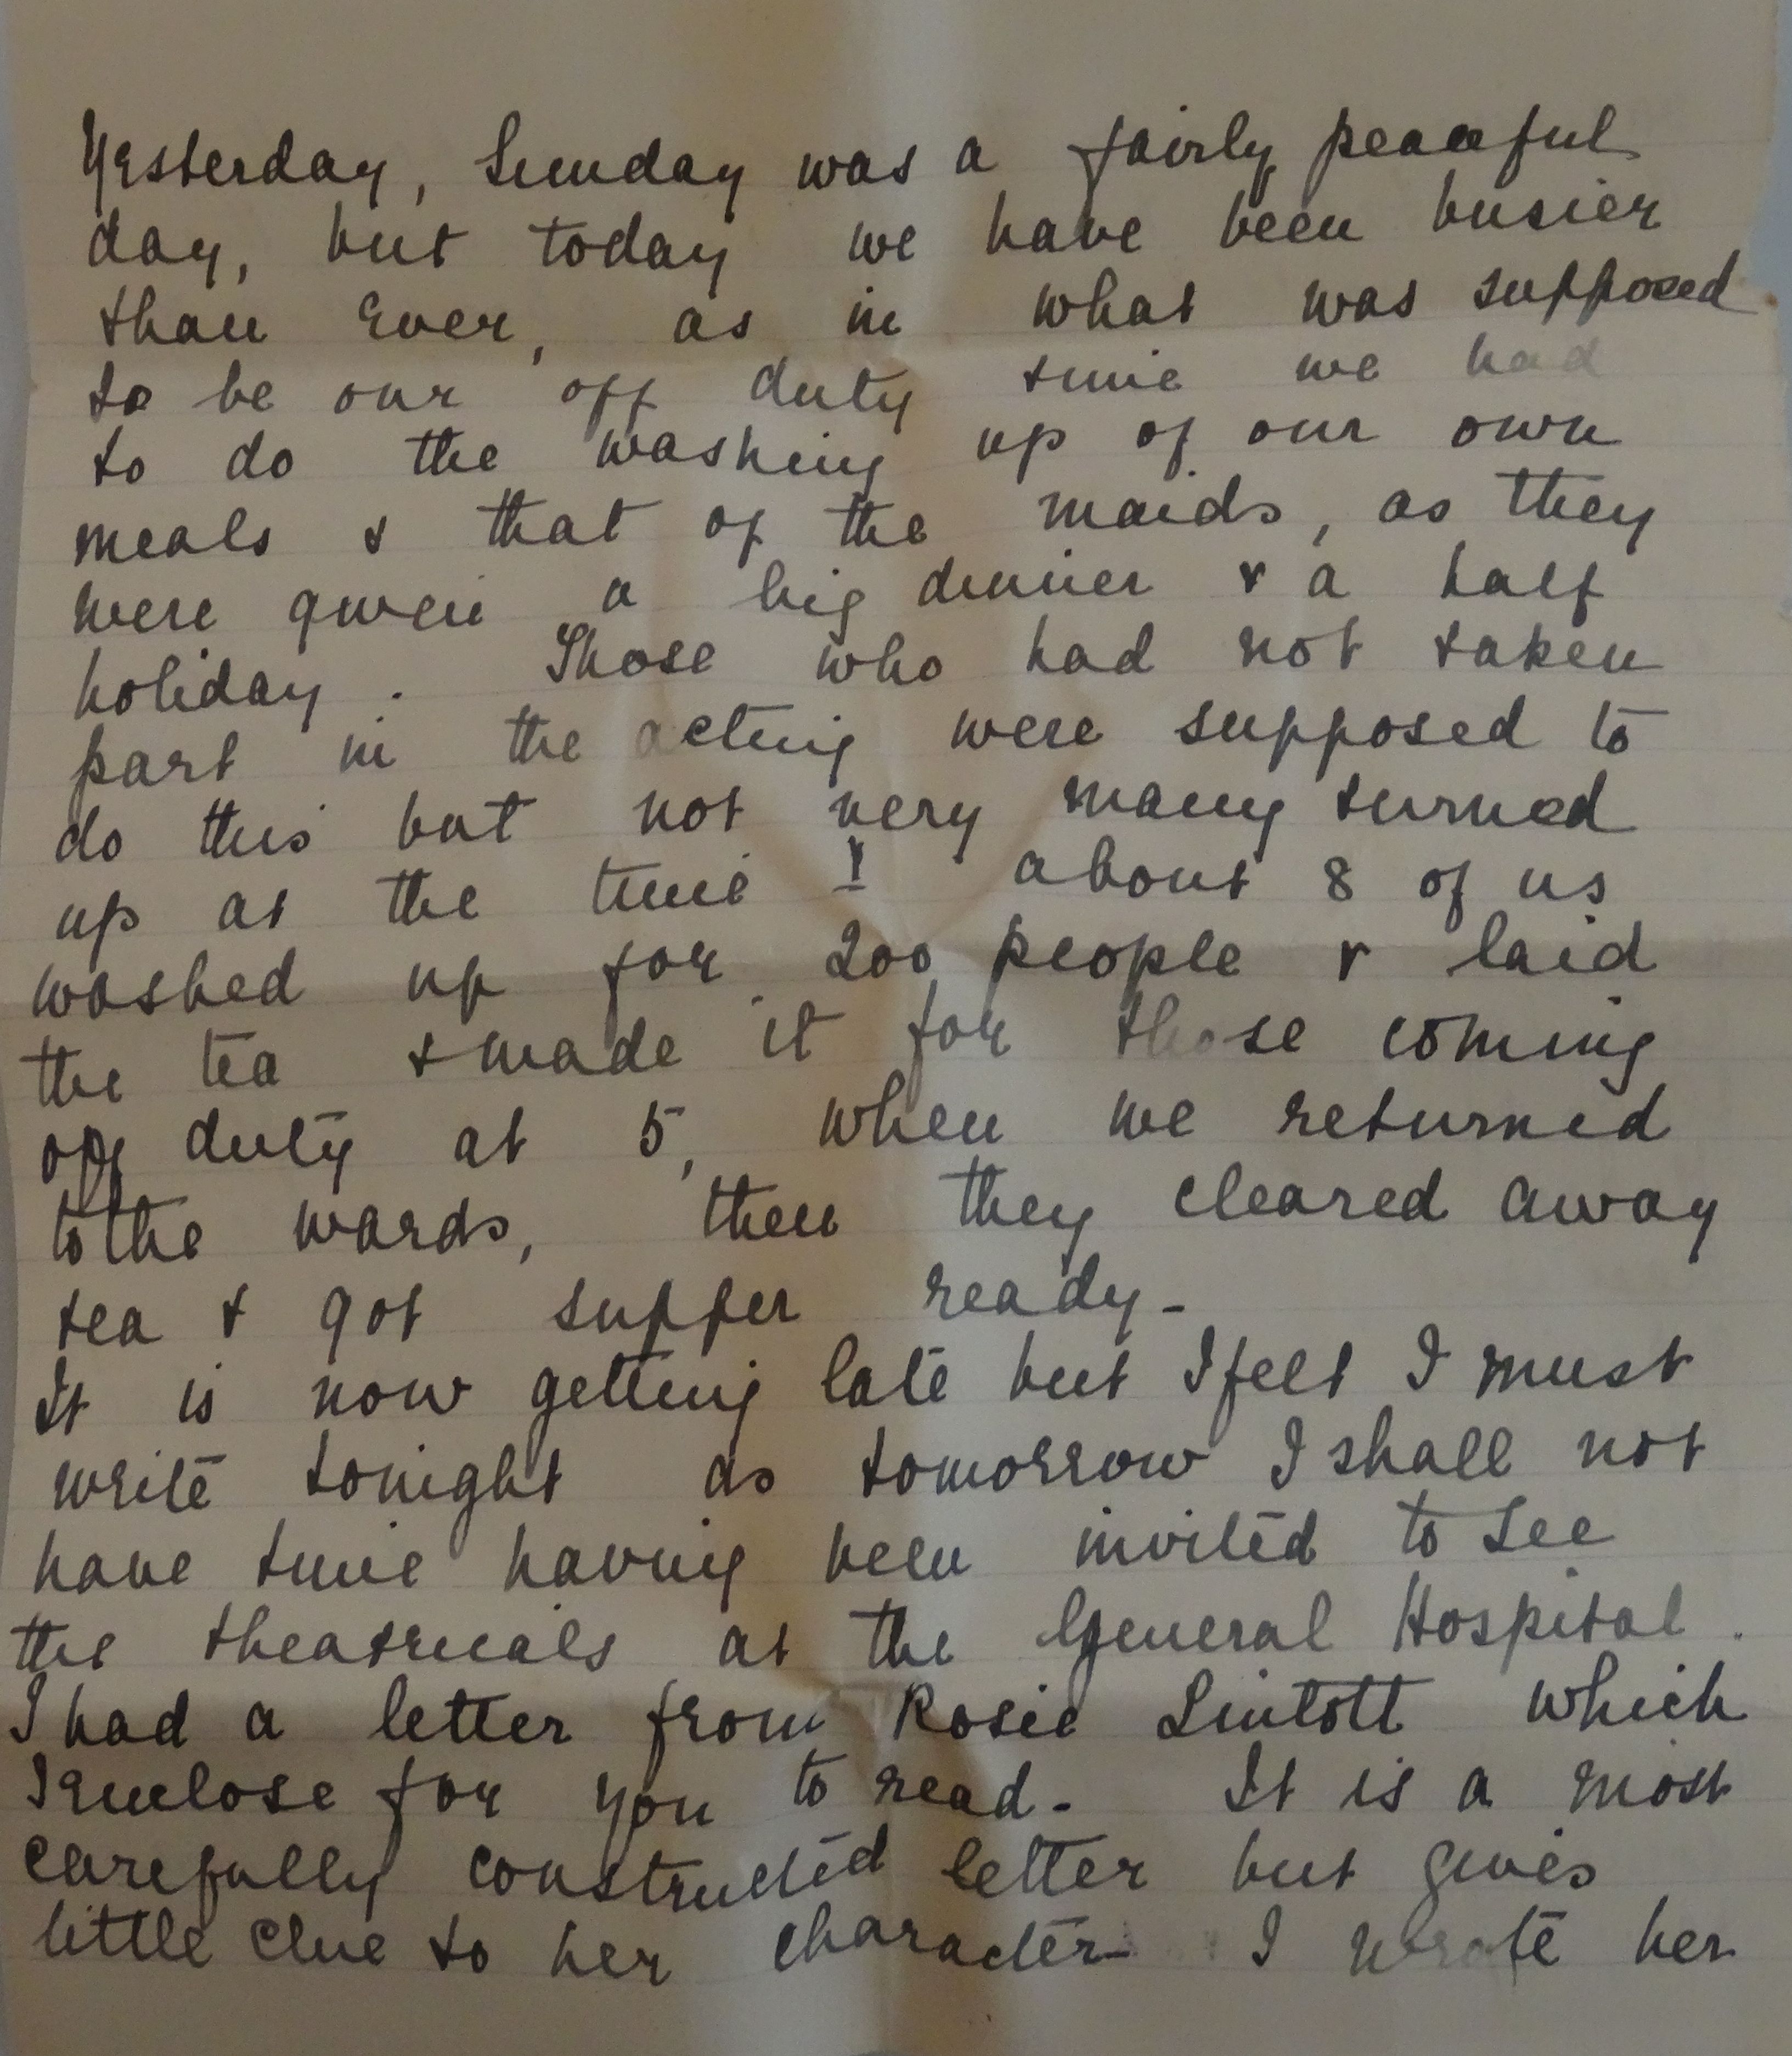 Yesterday, Sunday was a fairly peaceful
day, but today we have been busier
than ever, as in what was supposed
to be our off duty time we had
to do the washing up of our own
meals & that of the maids, as they
were given a big dinner & a half
holiday. Those who had not taken
part in the acting were supposed to
do this but not very many turned
up at the time & about 8 of us
washed up for 200 people & laid
the tea & made it for those coming
off duty at 5, when we returned
to the wards, then they cleared away
tea & got supper ready -
It is now getting late but I felt I must
write tonight as tomorrow I shall not
have time having been invited to see
the theatricals at the General Hospital.
I had a letter from Rosie Lintott which
I enclose for you to read - It is a most
carefully constructed letter but gives
little clue to her character - I wrote her